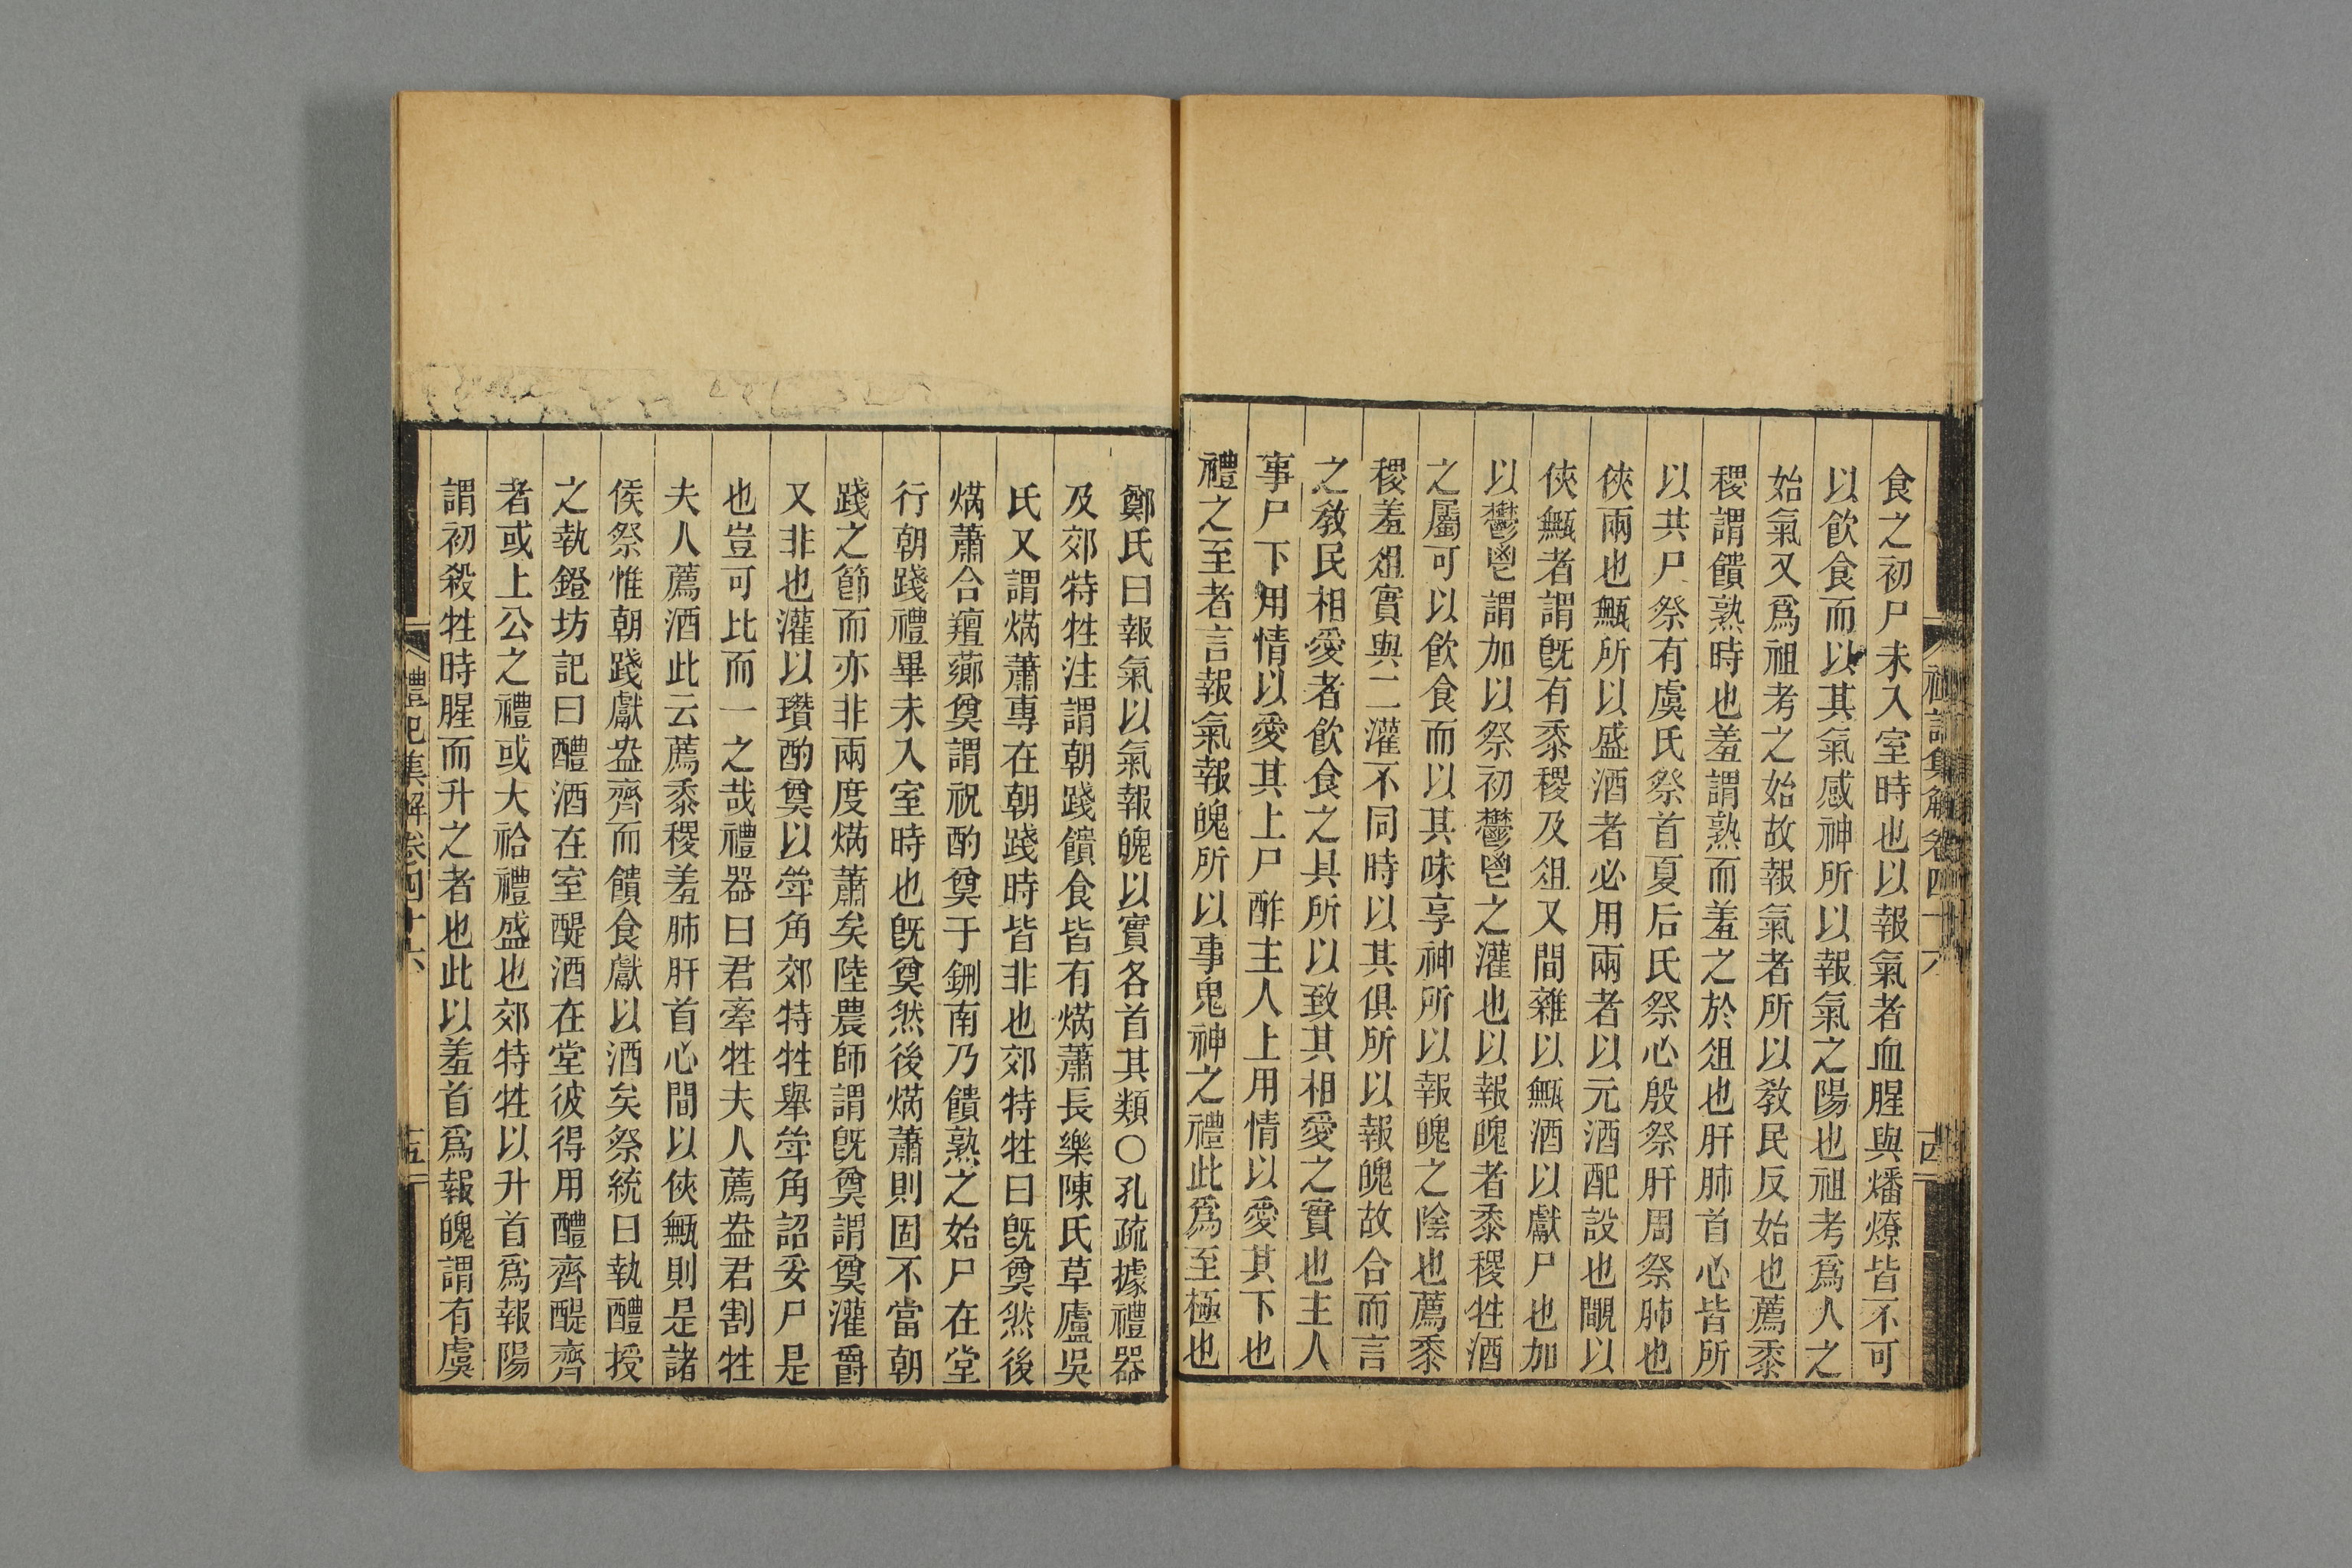 禮記集解卷四十六
古
食之初尸未入室時也以報氣者血腥與燔燎皆不可
以飮食而以其氣感神所以報氣之陽也祖考爲人之
始氣又爲祖考之始故報氣者所以敎民反始也薦黍
稷謂饋熟時也羞謂熟而羞之於俎也肝肺首心皆所
以共尸祭有虞氏祭首夏后氏祭心殷祭肝周祭肺也
俠兩也甒所以盛酒者必用兩者以元酒配設也覵以
俠甒者謂旣有黍稷及俎又間雜以甒酒以獻尸也加
以鬱鬯謂加以祭初鬱鬯之灌也以報魄者黍稷牲酒
之屬可以飮食而以其味享神所以報魄之陰也薦黍
稷羞俎實與二灌不同時以其俱所以報魄故合而言
之敎民相愛者飮食之具所以致其相愛之實也主人
事尸下用情以愛其上尸酢主人上用情以愛其下也
禮之至者言報氣報魄所以事鬼神之禮此爲至極也
鄭氏曰報氣以氣報魄以實各首其類○孔疏據禮器
及郊特牲注謂朝踐饋食皆有焫蕭長樂陳氏草廬吳
氏又謂焫蕭專在朝踐時皆非也郊特牲曰旣奠然後
焫蕭合羶薌奠謂祝酌奠于鉶南乃饋熟之始尸在堂
行朝踐禮畢未入室時也旣奠然後焫蕭則固不當朝
踐之節而亦非兩度焫蕭矣陸農師謂旣奠謂奠灌爵
又非也灌以瓚酌奠以斝角郊特牲舉斝角詔妥尸是
也豈可比而一之哉禮器曰君牽牲夫人薦盎君割牲
夫人薦酒此云薦黍稷羞肺肝首心間以俠甒則是諸
侯祭惟朝踐獻盎齊而饋食獻以酒矣祭統曰執醴授
之執鐙坊記曰醴酒在室醍酒在堂彼得用醴齊醍齊
者或上公之禮或大祫禮盛也郊特牲以升首爲報陽
謂初殺牲時腥而升之者也此以羞首爲報魄謂有虞
禮記集解卷四十六
十五